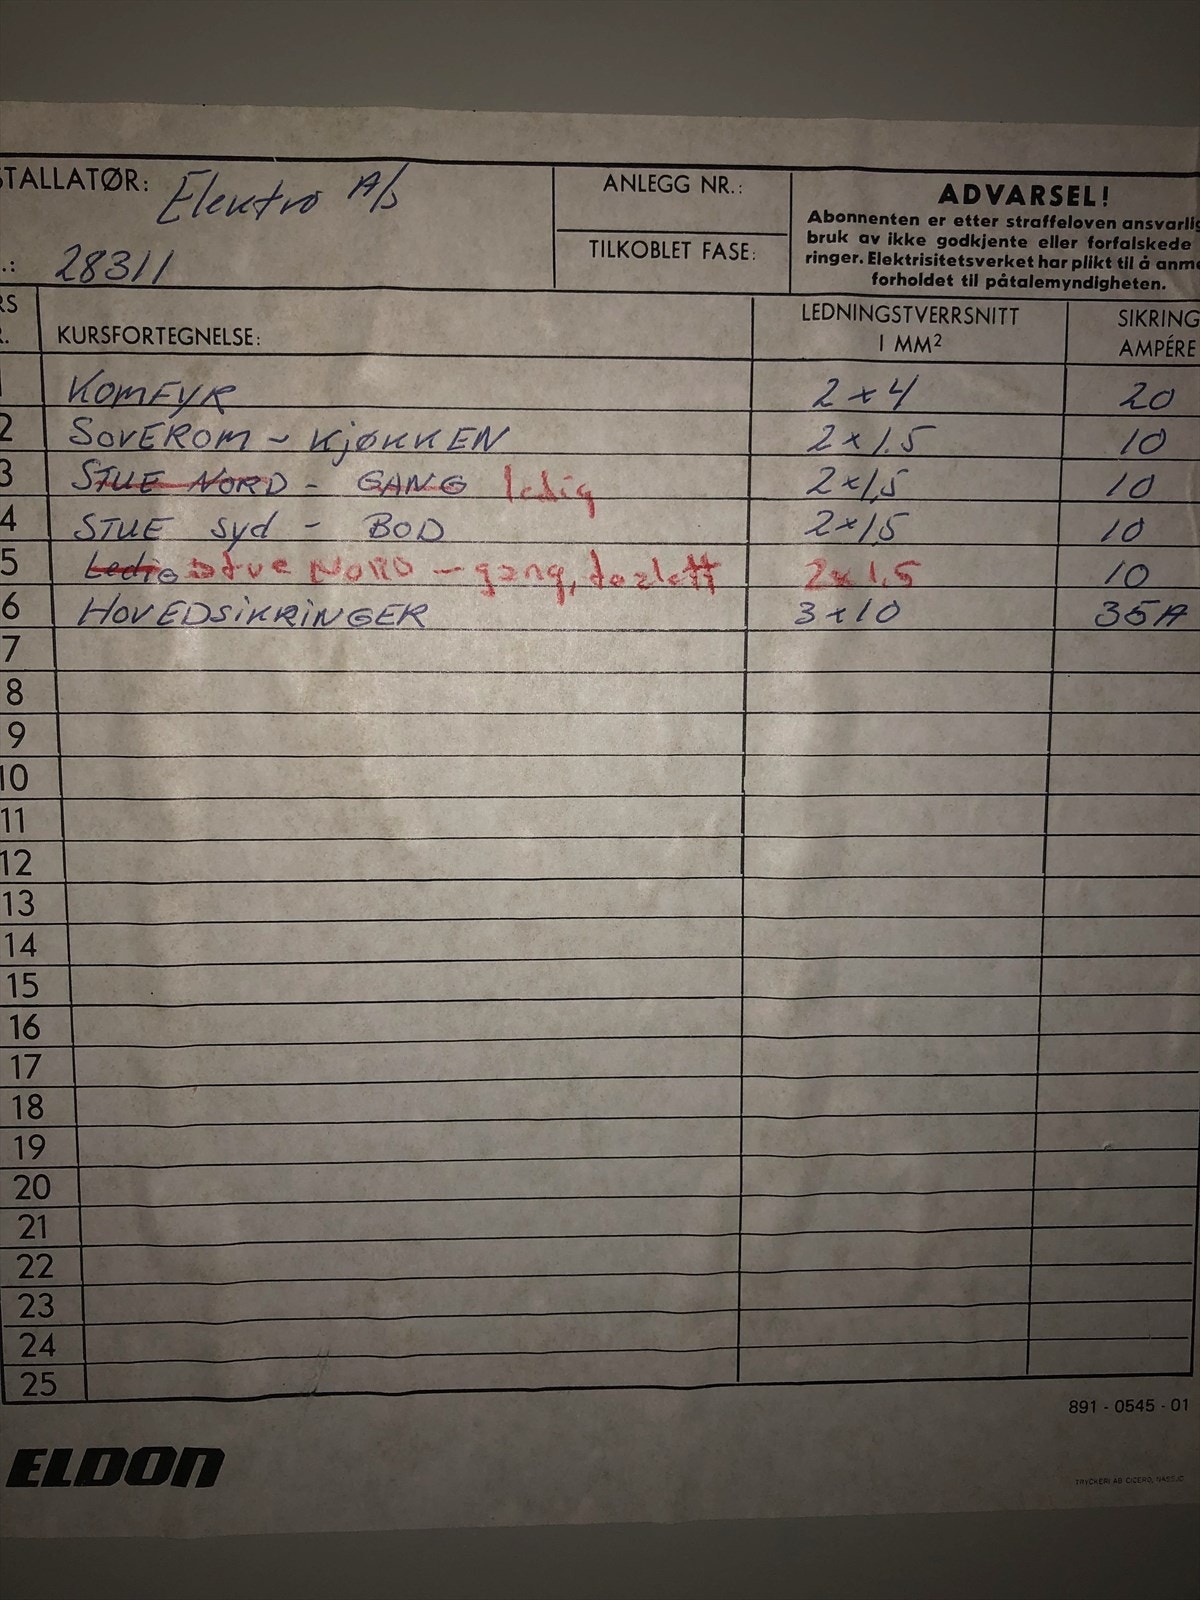 STALLATØR: Elektro A/S
.: 28311
ANLEGG NR.:
TILKOBLET FASE:
ADVARSEL!
Abonnenten er etter straffeloven ansvarlig
bruk av ikke godkjente eller forfalskede
ringer. Elektrisitetsverket har plikt til å anme
forholdet til påtalemyndigheten.
RS
R. KURSFORTEGNELSE: LEDNINGSTVERRSNITT I MM² SIKRING AMPÉRE
1 KOMFYR 2x4 20
2 SOVEROM - KJØKKEN 2x1.5 10
3 STUE NORD - GANG ledig 2x1,5 10
4 STUE syd - BOD 2x1,5 10
5 Ledig stue NORD - gang, toalett 2x1.5 10
6 HOVEDSIKRINGER 3x10 35A
7
8
9
10
11
12
13
14
15
16
17
18
19
20
21
22
23
24
25
891 - 0545 - 01
ELDON
TRYCKERI AB CICERO, NÄSSJÖ